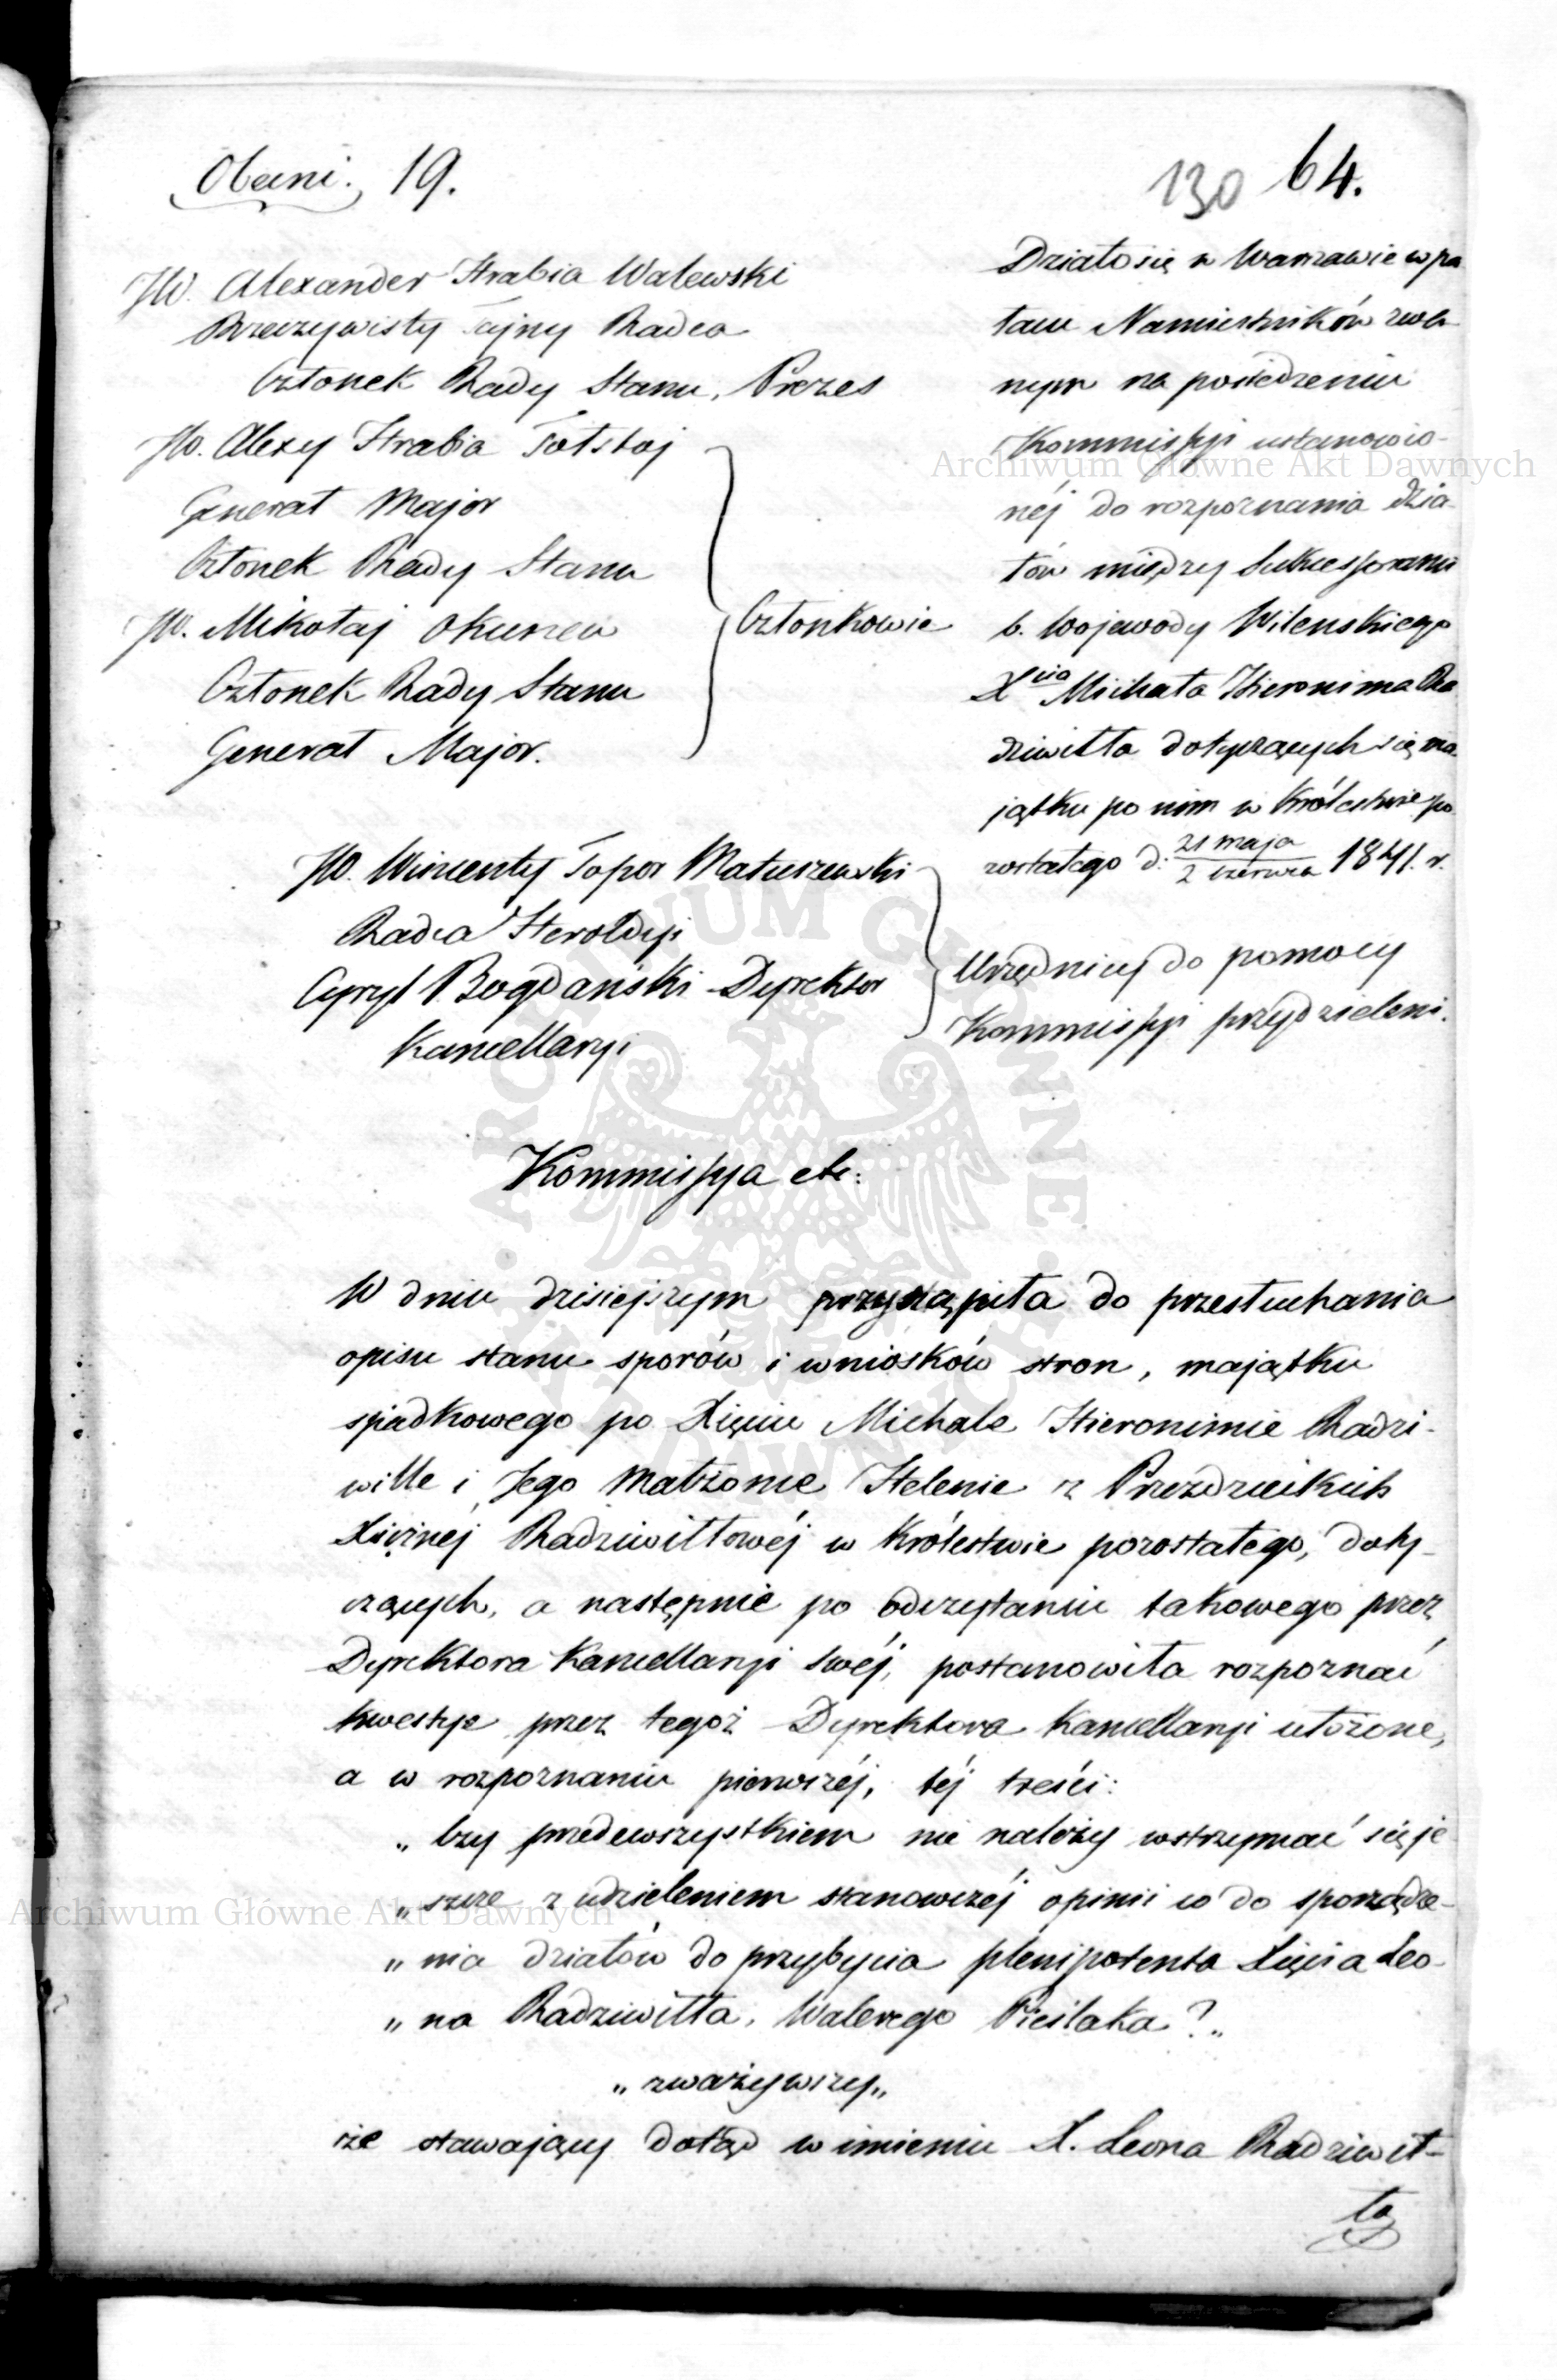 Obecni. 19.
130 64.
JW. Alexander Hrabia Walewski
Rzeczywisty Tajny Radca
Członek Rady Stanu, Prezes
JW. Alexy Hrabia Tołstoj
Generał Major
Członek Rady Stanu
JW. Mikołaj Okunew
Członek Rady Stanu
Generał Major.
Członkowie
Działo się w Warszawie w pa
łacu Namiestników zwa-
nym na posiedzeniu
Kommissyi ustanowio-
néj do rozpoznania dzia-
łów między Sukcessorami
b. Wojewody Wileńskiego
Xcia Michała Hieronima Ra
dziwiłła dotyczących się ma-
jątku po nim w Królestwie po
zostałego d. 21 maja / 2 czerwca 1841. r.
JW. Wincenty Topor Matuszewski
Radca Heroldyi
Cyryl Bogdański Dyrektor
Kancellaryi
Urzędnicy do pomocy
Kommissyi przydzieleni.
Kommissya etc:
W dniu dzisiejszym przystąpiła do przesłuchania
opisu stanu sporów i wniosków stron, majątku
spadkowego po Xięciu Michale Hieronimie Radzi-
wille i Jego Małżonce Helenie z Przezdzieckich
Xiężnéj Radziwiłłowéj w Królestwie pozostałego, doty-
czących, a następnie po odczytaniu takowego przez
Dyrektora Kancellaryi Swéj, postanowiła rozpoznać
kwestye przez tegoż Dyrektora Kancellaryi ułożone,
a w rozpoznaniu pierwszéj, téj treści:
„ Czy przedewszystkiem nie należy wstrzymać się je
„ szcze z udzieleniem stanowczéj opinii co do sporządze-
„ nia działów do przybycia plenipotenta Xięcia Leo-
„ na Radziwiłła, Walerego Pieślaka? „
„ zważywszy „
że stawający dotąd w imieniu X. Leona Radziwił-
ła
Archiwum Główne Akt Dawnych
Archiwum Główne Akt Dawnych
ARCHIWUM GŁÓWNE AKT DAWNYCH